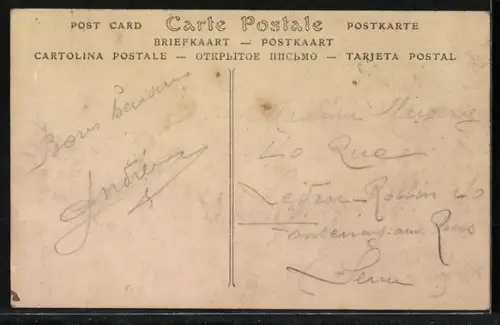 POST CARD Carte Postale POSTKARTE
BRIEFKAART – POSTKAART
CARTOLINA POSTALE – ОТКРЫТОЕ ПИСЬМО – TARJETA POSTAL
Bons baisers
Andrée
Madame
40 Rue
Ledru-Rollin 40
Fontenay aux Roses
Seine